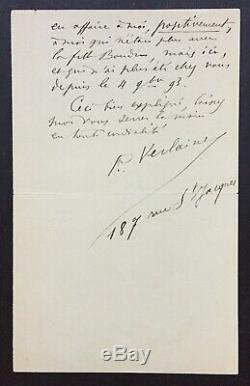 en affaire à moi, positivement,
à moi qui n'étais plus avec
la fett Boudin, mais ici,
et qui n'ai plus été chez vous
depuis le 4 9bre 93.
Ceci bien expliqué, laissez
moi vous serrer la main
en toute cordialité
P. Verlaine
187 rue St Jacques